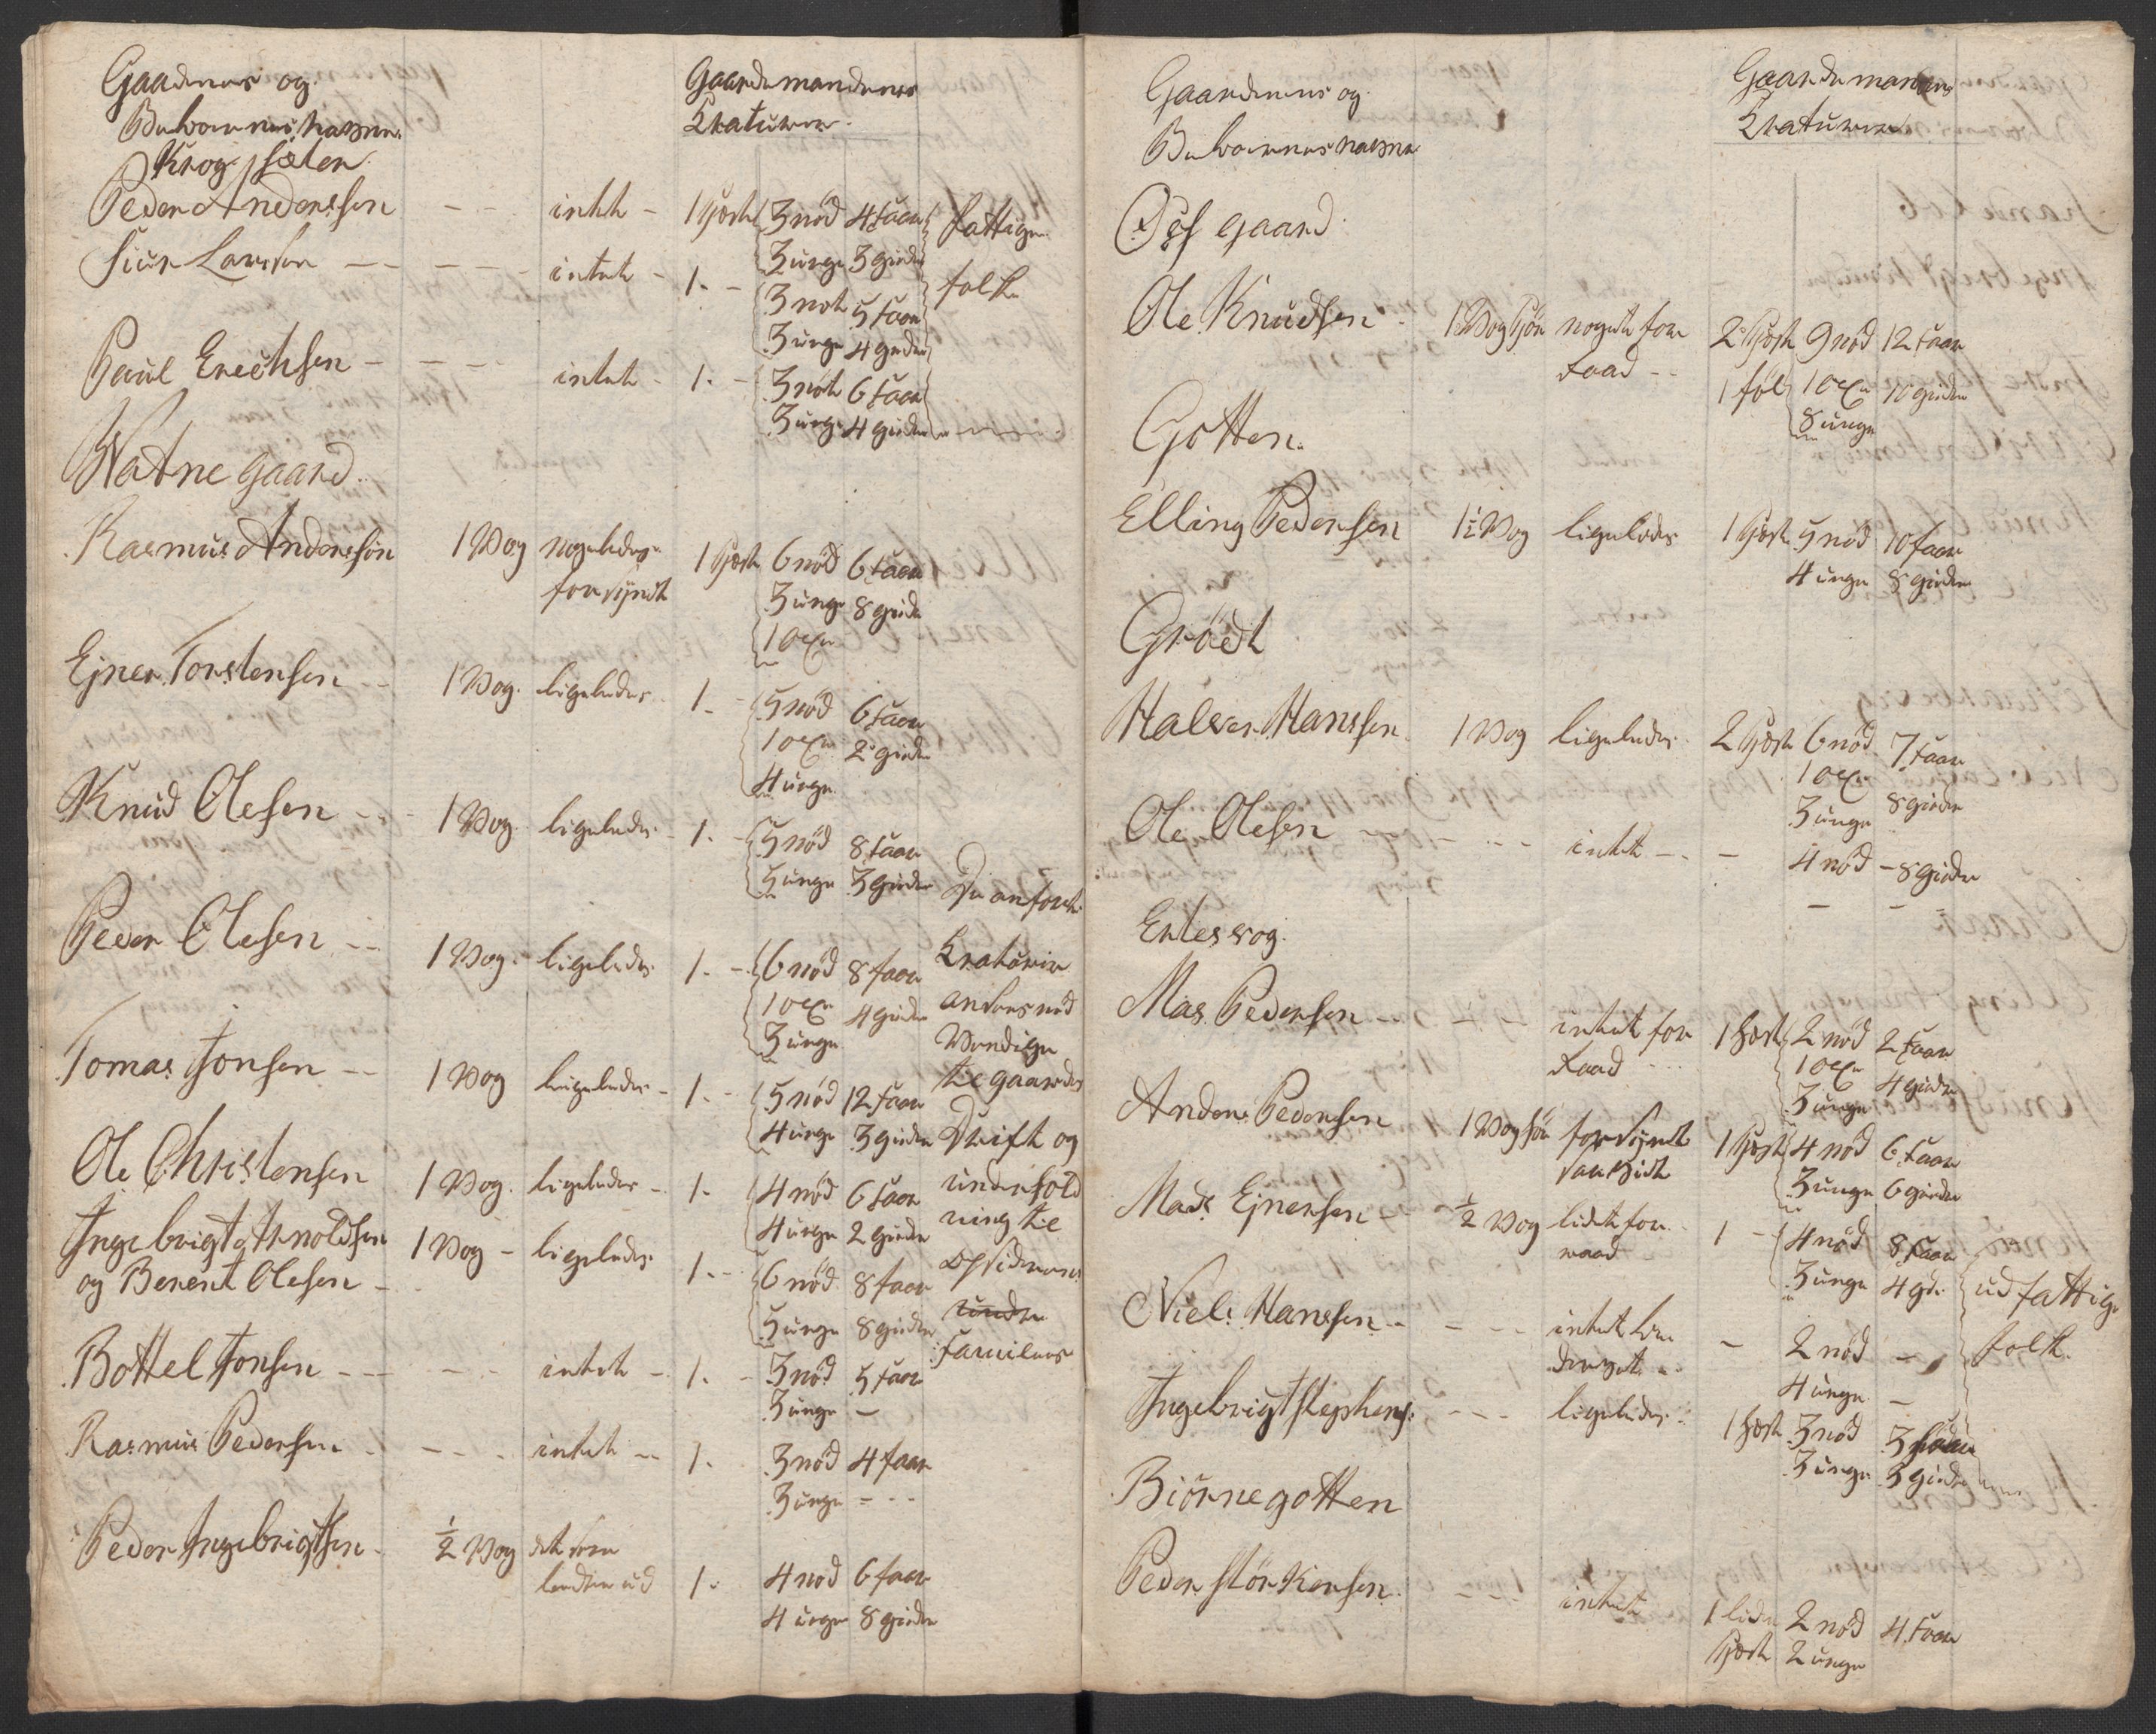 Gaardenes og
Beboernes nafne
Gaardemandenes
Kraturer
Krogsæter
Peder Anderssen - - - intet - 1 Hæst 3 nød 4 faar fattige
3 unge 3 gieder
Siur Larssen - - - intet - 1. - 3 nøt 5 faar folk
3 unge 4 gieder
Paul Erichsen - - - intet - 1. - 3 nøt 6 faar
3 unge 4 gieder
Watne gaard
Rasmus Anderssøn 1 Vog nogeledes 1 Hæst 6 nød 6 faar
forsyndt 3 unge 8 giede
1 oxe
Ejner Torstensen - 1 Vog. ligeledes 1. - 5 nød 6 faar
1 oxe 2 gieder
4 unge
Knud Olesen - - 1 Vog. ligeledes - 1. - 5 nød 8 faar
5 unge 3 gieder De anførte
Peder Olesen - - 1 Vog. ligeledes 1. - 6 nød 8 faar Kraturer
1 oxe 4 gieder ansees nød
3 unge Vendige
Tomas Jonsen - - 1 Vog ligeledes - 1. - 5 nød 12 faar til gaardes
4 unge 3 gieder Drift og
Ole Christensen 1 Vog. ligeledes - 1. 4 nød 6 faar underhold
4 unge 2 gieder ning til
Ingebrigt Arnoldsen 1 Vog - ligeledes
og Berent Olesen - 1. - 6 nød 8 faar opsidernes
5 unge 8 gieder under
Bottel Jonsen - - - intet - 1. - 3 nød 5 faar familens
3 unge -
Rasmus Pedersen - - - intet - 1. 3 nød 4 faar
3 unge - - -
Peder Ingebrigtsen - ½ Vog det som
ledien ud 1. 4 nød 6 faar
4 unge 8 gieder
Gaardenes og
Beboernes nafne
Gaardemandens
Kraturer
Øss gaard
Ole Knudsen - 1 Vog Kjøn noget for 2 Hæst 9 nød 12 faar
raad - - 1 føl 1 oxe 10 gieder
8 unge
Gotten.
Elling Pedersen 1½ Vog ligeledes 1 Hæst 5 nød 10 faar
4 unge 8 gieder
Grødt
Halvor Hanssen 1 Vog ligeledes 2 Hæst 6 nød 7 faar
1 oxe 8 gieder
3 unge
Ole Olesen - - - intet - - - 4 nød - 8 gieder
Ertesvog.
Mas Pedersen - - - intet for 1 Hæst 2 nød 2 faar
raad - - 1 oxe 4 gieder
3 unge
Anders Pedersen 1 Vog Kjøn forsyndt 1 Hæst 4 nød 6 faar
saavidt 3 unge 6 gieder
Mads Ejnersen - ½ Vog lidt for 1 - 4 nød 8 faar
raad 3 unge 4 gie. udfattige
Niels Hanssen - - - intet kon - 2 nød - folk.
4 unge -
Ingebrigt Stephens. - - - ligeledes 1 Hæst 3 nød 3 faar
3 unge 3 gieder
Biørnegotten
Peder Størkersen. - - - intet 1 liden 2 nød 4 faar
Hæst 2 unge